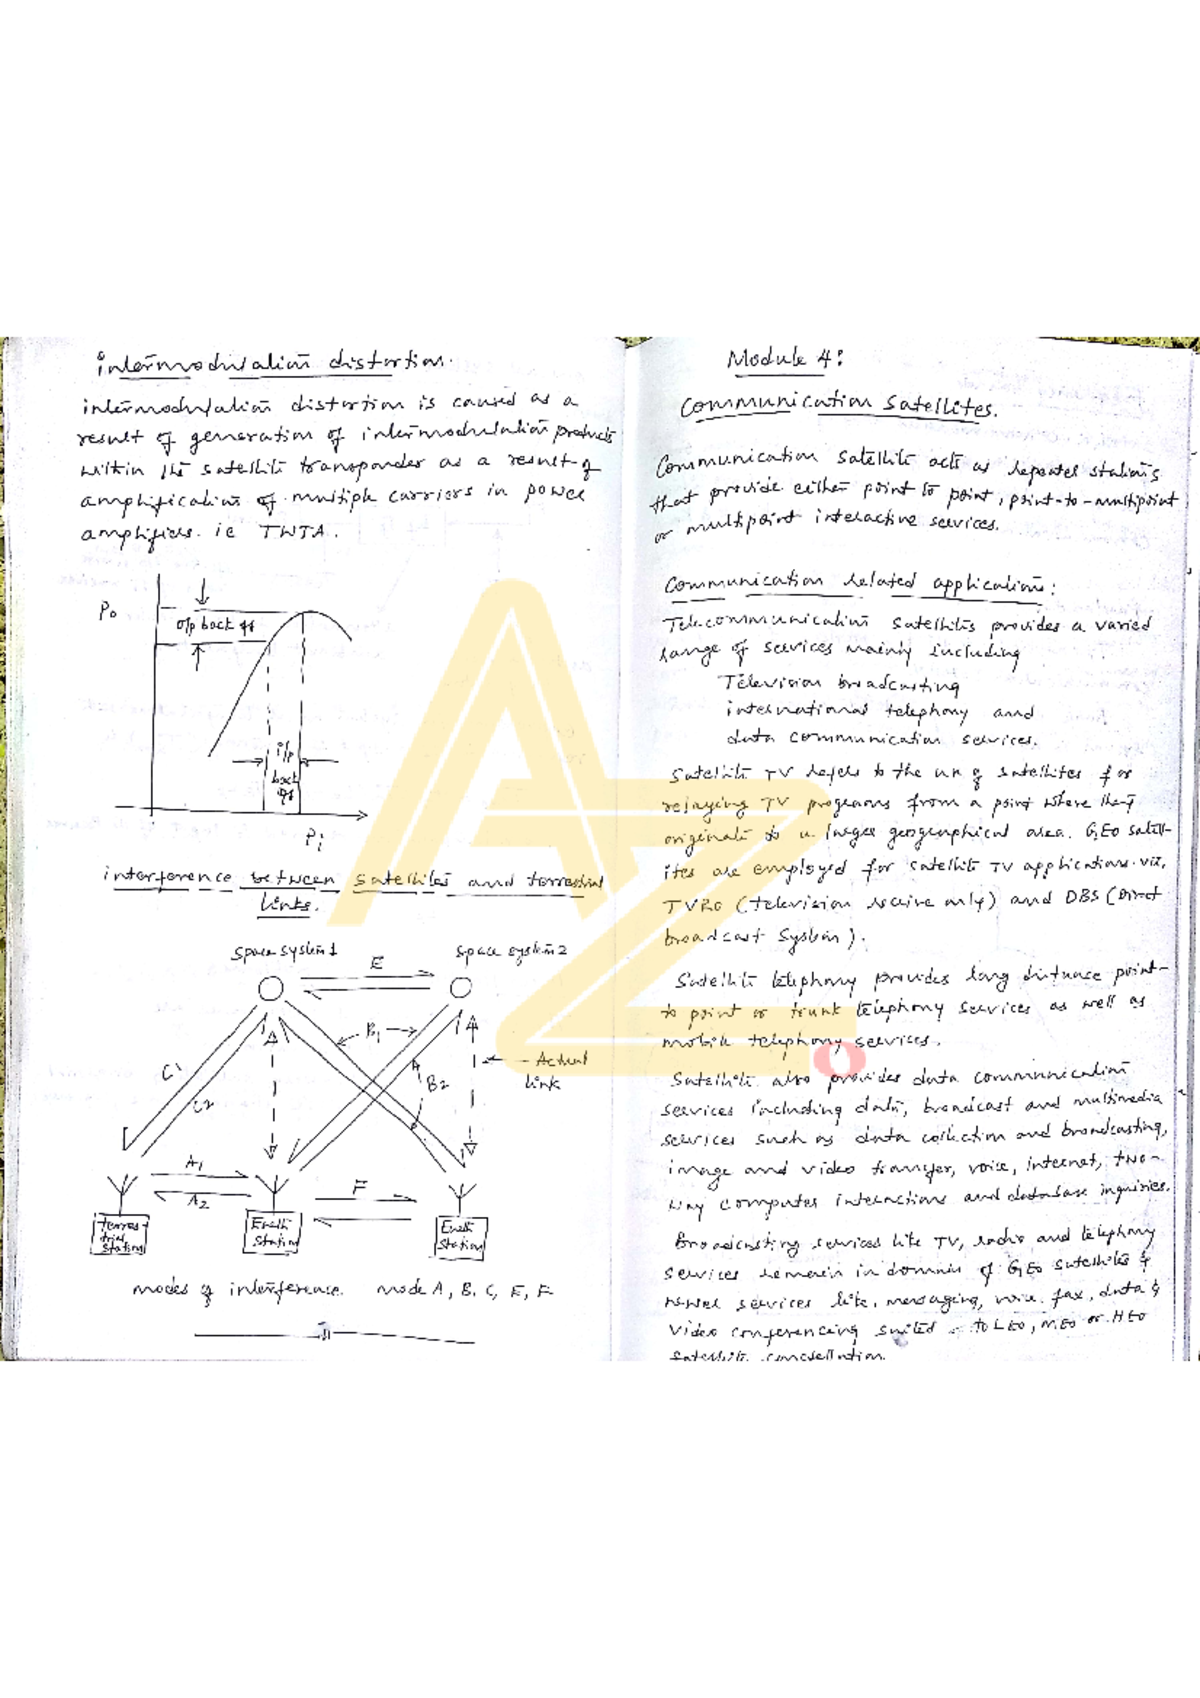 intermodulation distortion.
intermodulation distortion is caused as a
result of generation of intermodulation products
within the satellite transponder as a result of
amplification of multiple carriers in power
amplifiers. ie TWTA.
Po
o/p back off
i/p
back
off
Pi
interference between satellites and terrestrial
links.
Space system 1
Space system 2
E
B1
C1
C2
B2
Actual
link
A1
A2
F
Terres-
trial
station
Earth
Station
Earth
Station
modes of interference. mode A, B, C, E, F
Module 4:
Communication Satellites.
Communication satellite acts as repeater stations
that provide either point to point, point-to-multipoint
or multipoint interactive services.
Communication related applications:
Telecommunication satellites provides a varied
range of services mainly including
Television broadcasting
international telephony and
data communication services.
Satellite TV refers to the use of satellites for
relaying TV programs from a point where they
originate to a larger geographical area. GEO satell-
ites are employed for satellite TV applications viz.
TVRO (television receive only) and DBS (Direct
broadcast System).
Satellite telephony provides long distance point-
to point or trunk telephony services as well as
mobile telephony services.
Satellite also provides data communication
services including data, broadcast and multimedia
services such as data collection and broadcasting,
image and video transfer, voice, internet, two-
way computer interactions and database inquiries.
Broadcasting services like TV, radio and telephony
services remain in domain of GEO satellites &
newer services like, messaging, voice, fax, data &
video conferencing suited to LEO, MEO or HEO
satellite constellation.
AZ